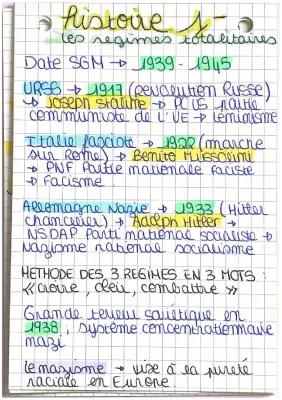 histoire 1-
les regimes totalitaires
Date SGM → 1939 - 1945
URSS → 1917 (revolution Russe)
→ Joseph Staline → PCUS partie
communiste de l'UE → Leninisme
Italie fasciste → 1922 (marche
sur Rome) → Benito Mussolini
→ PNF Partie nationale faciste
→ Facisme.
Allemagne Nazie → 1933 (Hitler
chancelier) → Adolph Hitler →
NSDAP Parti national socialiste →
Nazisme national socialisme
METHODE DES 3 REGIMES EN 3 MOTS :
« croire, obeir, combattre »
Grande terreur soviétique en
1938 ; système concentrationnaire
nazi
le nazisme → vise à la pureté
raciale en Europe.